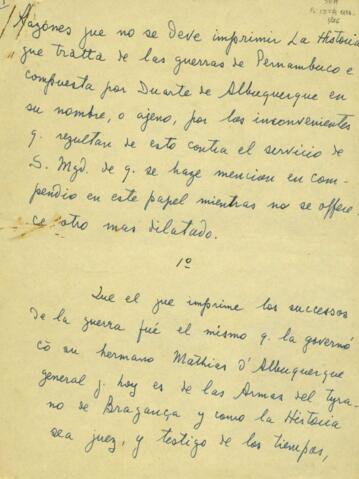 Razones que no se deve imprimir La Historia
que tratta de las guerras de Pernambuco e
compuesta por Duarte de Albuquerque en
su nombre, o ajeno, por los inconvenientes
q. rezultan de esto contra el servicio de
S. Mgd. de q. se haze mencion en com-
pendio en este papel mientras no se offere-
ce otro mas dilatado.
1º
Que el que imprime los successos
de la guerra fué el mismo q. la governó
cõ su hermano Mathias d'Albuquerque
general q. hoy es de las Armas del tyra-
no de Bragança y como la Historia
sea juez, y testigo de los tiempos,